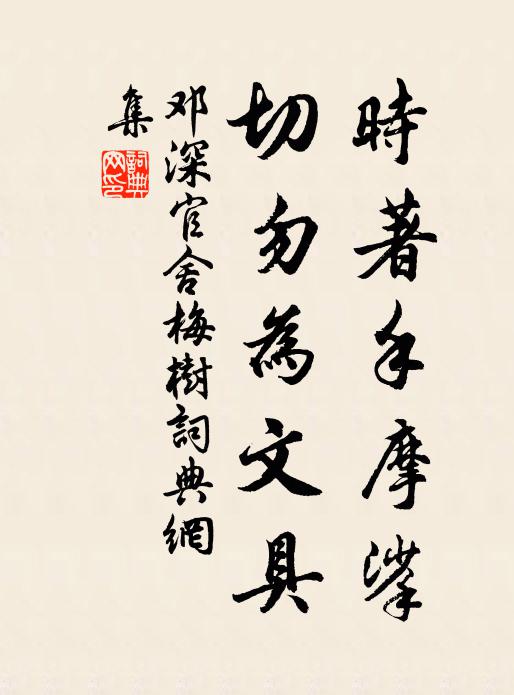 時著手摩挲
切勿為文具
邓深官舍梅樹詞典網
集
詞典網印